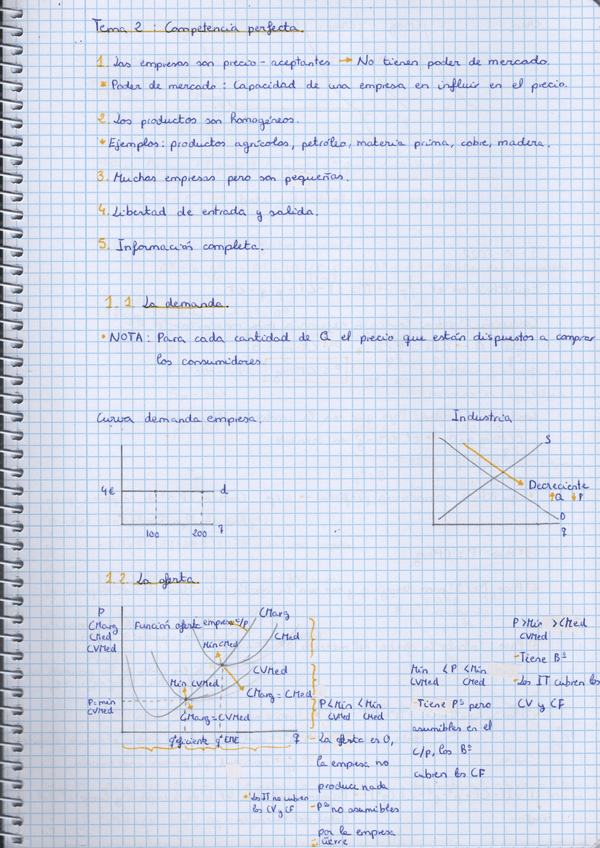 Tema 2 : Competencia perfecta.
1. Las empresas son precio-aceptantes → No tienen poder de mercado.
* Poder de mercado : Capacidad de una empresa en influir en el precio.
2. Los productos son homogéneos.
* Ejemplos: productos agrícolas, petróleo, materia prima, cobre, madera.
3. Muchas empresas pero son pequeñas.
4. Libertad de entrada y salida.
5. Información completa.
1.1. La demanda.
• NOTA : Para cada cantidad de Q el precio que están dispuestos a comprar
los consumidores.
Curva demanda empresa.
4€
d
100
200
q
Industria
S
Decreciente
↑Q ↓P
D
q
1.2. La oferta.
P
CMarg
CMed
CVMed
Función oferta empresa c/p
CMarg
Min CMed
CMed
Min CVMed
CVMed
CMarg = CMed
CMarg = CVMed
P = min
CVMed
q
- Los IT no cubren
los CV y CF
P < Min < Min
CVMed CMed
- La oferta es 0,
la empresa no
produce nada
- Pªˢ no asumibles
por la empresa
- Cierre
Min < P < Min
CVMed CMed
- Tiene Pªˢ pero
asumibles en el
c/p, los Bº
cubren los CF
P > Min > CMed
CVMed
- Tiene Bº
- Los IT cubren los
CV y CF